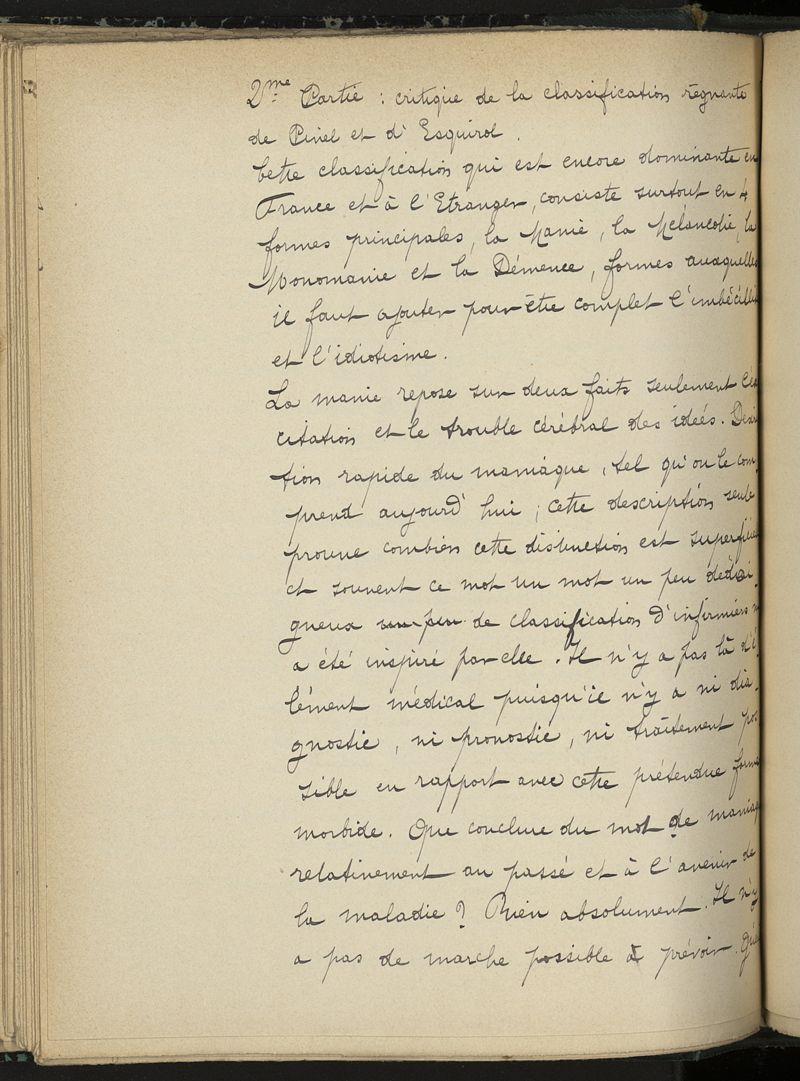 2me Partie : critique de la classification régnante
de Pinel et d'Esquirol.
Cette classification qui est encore dominante en
France et à l'Etranger, consiste surtout en 4
formes principales, la Manie, la Mélancolie, la
Monomanie et la Démence, formes auxquelles
il faut ajouter pour être complet l'imbécillit
et l'idiotisme.
La manie repose sur deux faits seulement l'ex
citation et le trouble cérébral des idées. Descri
tion rapide du maniaque, tel qu'on le com
prend aujourd'hui ; cette description seule
prouve combien cette distinction est superficiel
et souvent ce mot un mot un peu dédai-
gneux un peu de classification d'infirmiers
a été inspiré par elle. Il n'y a pas là d'é
lément médical puisqu'il n'y a ni dia-
gnostic, ni pronostic, ni traitement pos
sible en rapport avec cette prétendue forme
morbide. Que conclure du mot de maniaq
relativement au passé et à l'avenir de
la maladie ? Rien absolument. Il n'y
a pas de marche possible à prévoir.